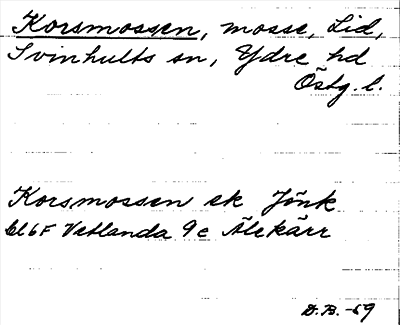 Korsmossen, mosse, Lid,
Svinhults sn, Ydre hd
Östg. l.
Korsmossen ek Jönk
bl 6F Vetlanda 9c Älekärr
D.B. -69